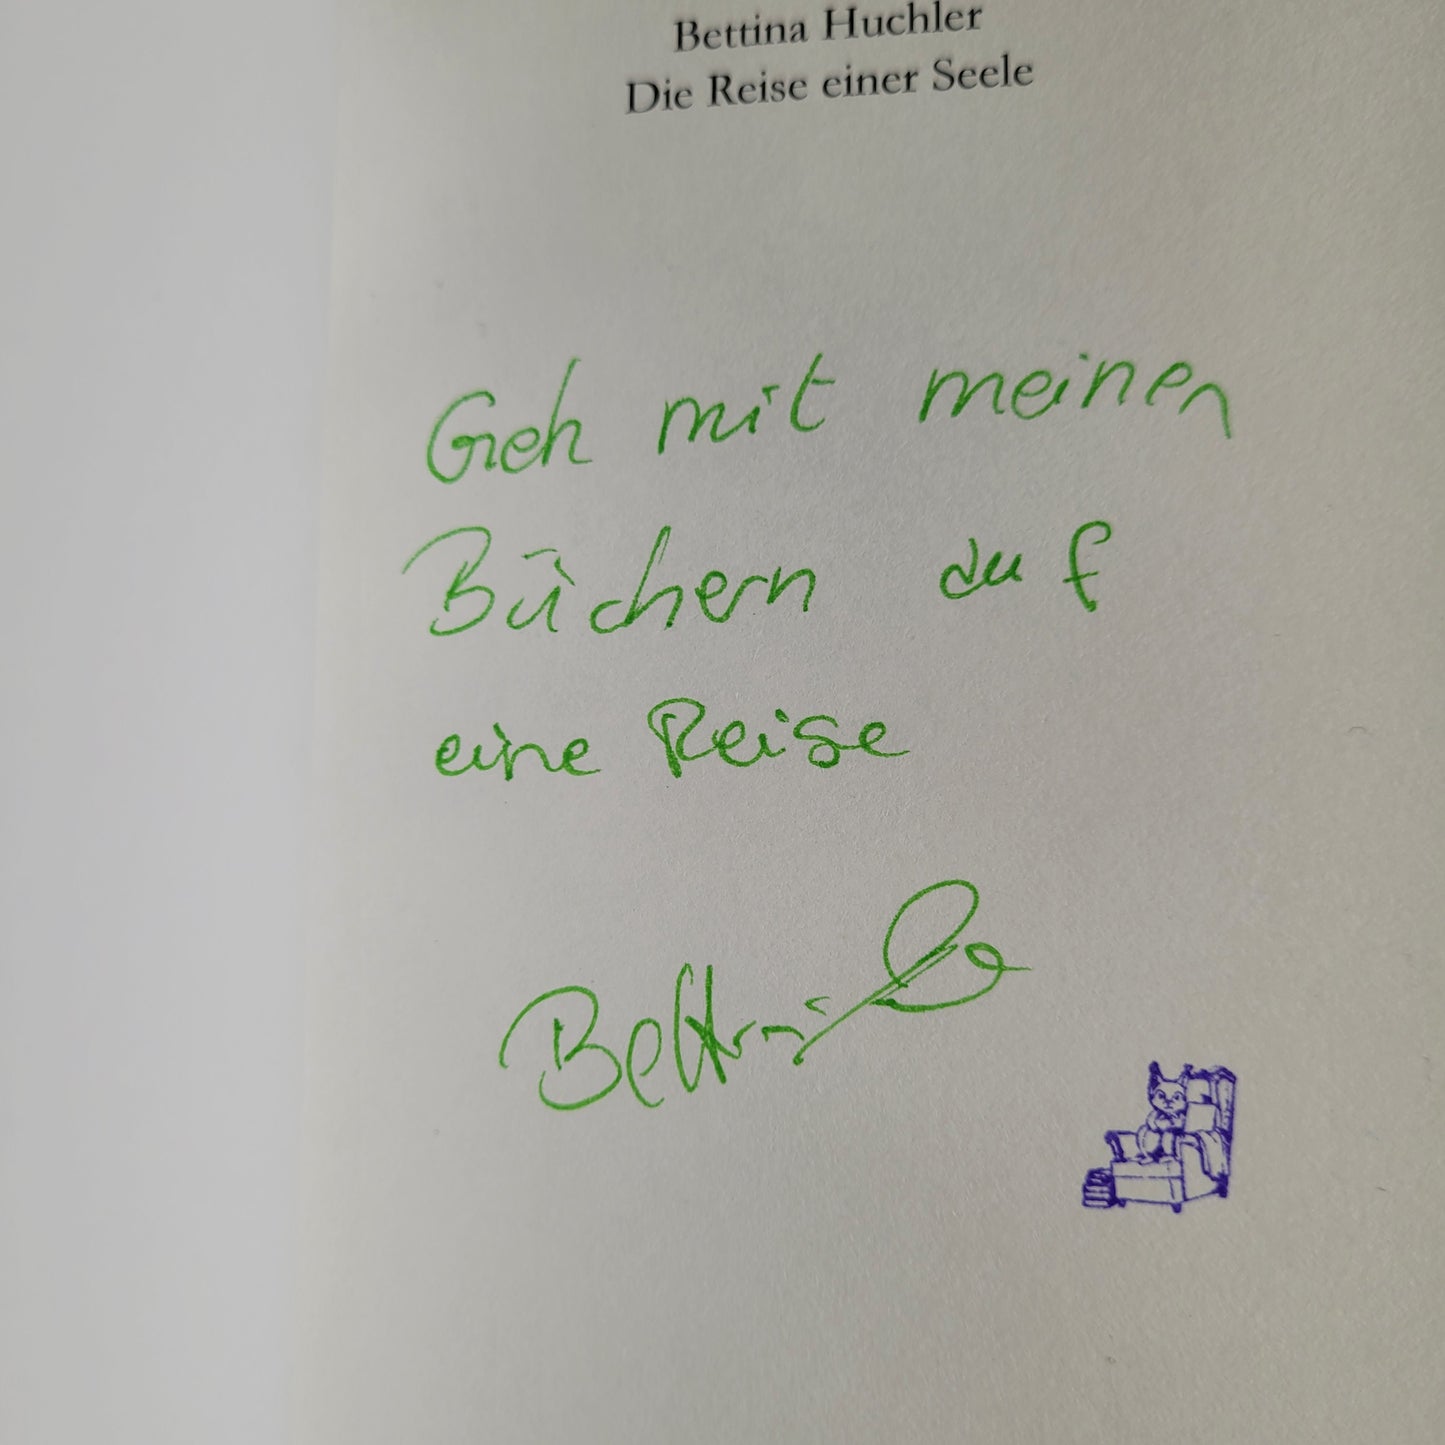 Bettina Huchler
Die Reise einer Seele
Geh mit meinen
Büchern auf
eine Reise
Bettina